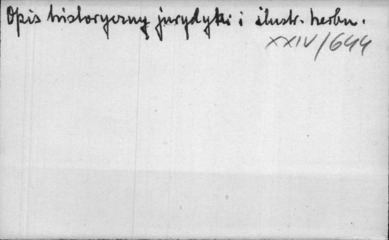 Opis historyczny jurydyki i ilustr. herbu.
XXIV/644